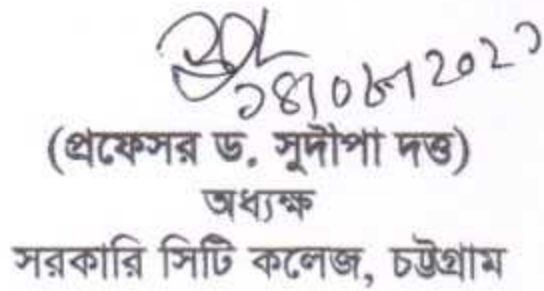 ১৪/০৮/২০২১
(প্রফেসর ড. সুদীপা দত্ত)
অধ্যক্ষ
সরকারি সিটি কলেজ, চট্টগ্রাম